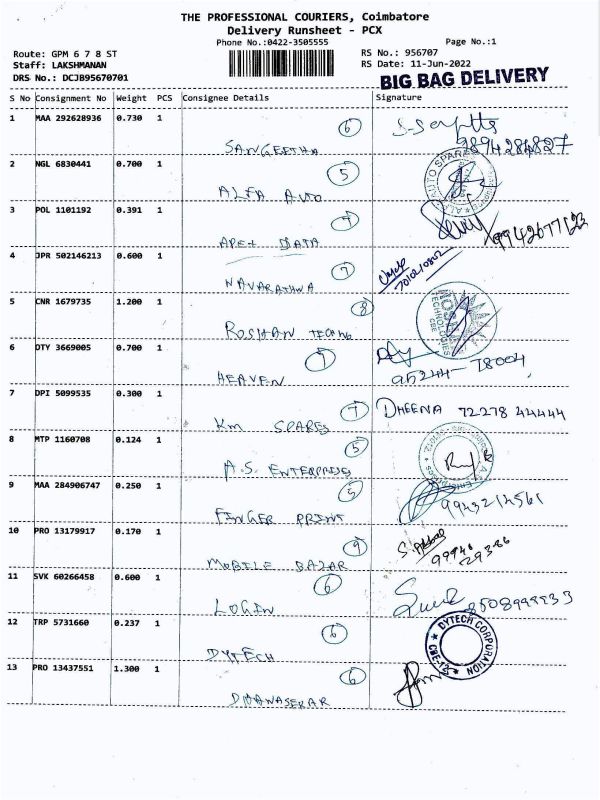 THE PROFESSIONAL COURIERS, Coimbatore
Delivery Runsheet - PCX
Phone No.:0422-3505555
Page No.:1
Route: GPM 6 7 8 ST
RS No.: 956707
Staff: LAKSHMANAN
RS Date: 11-Jun-2022
DRS No.: DCJB95670701
BIG BAG DELIVERY
S No Consignment No Weight PCS Consignee Details Signature
1 MAA 292628936 0.730 1
6
SANGEETHA
9894284827
2 NGL 6830441 0.700 1
5
ALFA AUTO
ALFA AUTO SPARES
3 POL 1101192 0.391 1
APEX DATA
4 JPR 502146213 0.600 1
7
NAVARATHNA
5 CNR 1679735 1.200 1
8
ROSHAN TECHNO
TECHNOLOGIES
CBE
6 DTY 3669005 0.700 1
HEAVEN
95244-78004
7 DPI 5099535 0.300 1
7
KM SPARES
DHEENA 72278 44444
8 MTP 1160708 0.124 1
5
A.S. ENTERPRISES
9 MAA 284906747 0.250 1
5
FINGER PRINT
9943214561
10 PRO 13179917 0.170 1
9
MOBILE BAZAR
99940
29386
11 SVK 60266458 0.600 1
6
LOGIN
12 TRP 5731660 0.237 1
6
DYTECH
DYTECH CORPORATION
13 PRO 13437551 1.300 1
6
DHANASEKAR